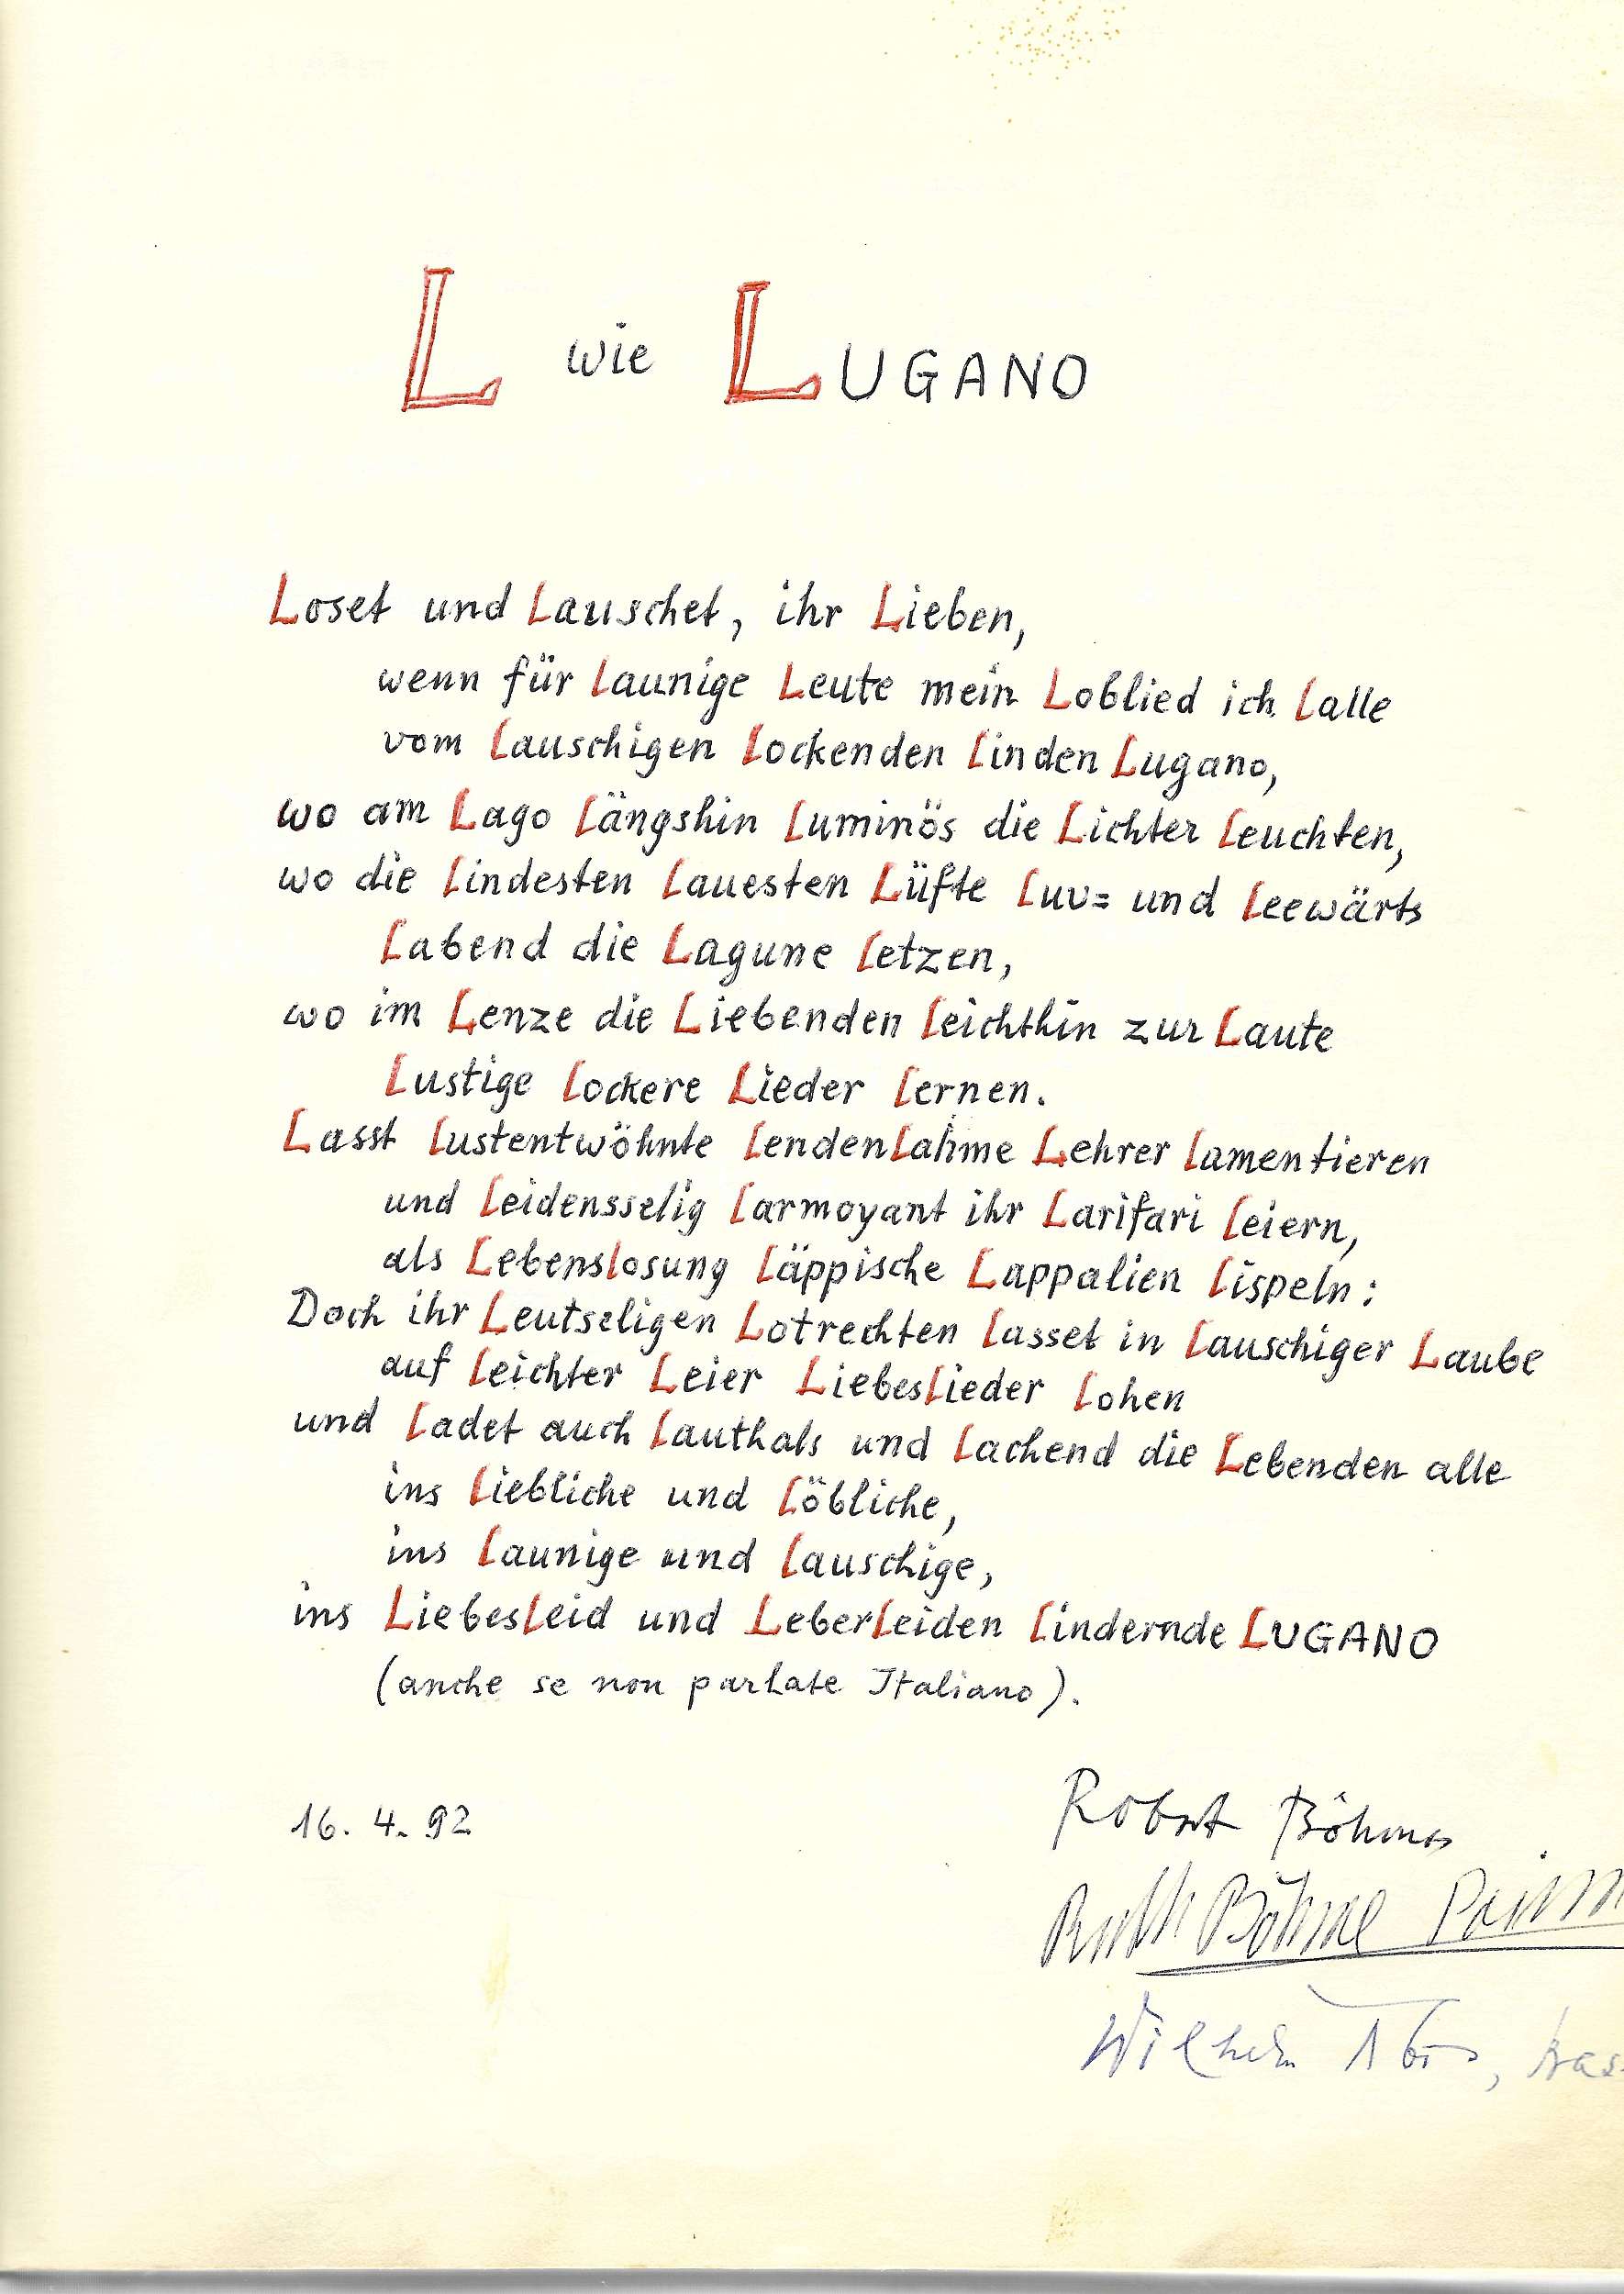 L wie LUGANO
Loset und Lauschet, ihr Lieben,
wenn für launige Leute mein Loblied ich lalle
vom lauschigen lockenden linden Lugano,
wo am Lago längshin luminös die Lichter leuchten,
wo die lindesten lauesten Lüfte luv= und leewärts
labend die Lagune letzen,
wo im Lenze die Liebenden leichthin zur Laute
lustige lockere Lieder lernen.
Lasst lustentwöhnte lendenlahme Lehrer lamentieren
und leidensselig larmoyant ihr Larifari leiern,
als Lebenslosung läppische Lappalien lispeln:
Doch ihr Leutseligen Lotrechten lasset in lauschiger Laube
auf leichter Leier Liebeslieder lohen
und ladet auch lauthals und lachend die Lebenden alle
ins liebliche und löbliche,
ins launige und lauschige,
ins Liebesleid und Leberleiden lindernde LUGANO
(anche se non parlate Italiano).
16. 4. 92
Robert Böhme
Ruth Böhme
Wilhelm